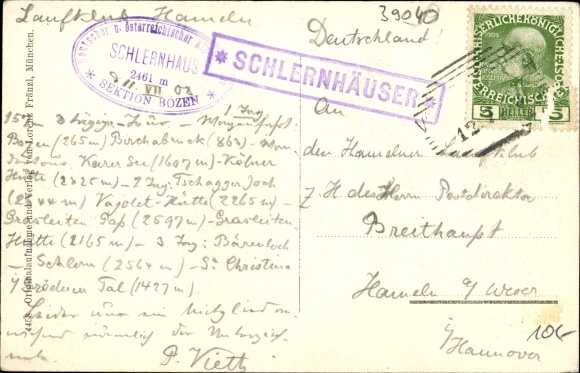 Laufklub Hameln
39040
Deutschland!
Deutscher u. österreichischer
SCHLERNHAUS
2461 m
SEKTION BOZEN
* SCHLERNHÄUSER *
KAISERLICHE KÖNIGLICHE
ÖSTERREICHISCHE
1908
5 HELLER 5
12
3 tägige Tour
1 Tag
Bozen (265 m) Birchabruck (863)
Karer See (1607 m) - Kölner
Hütte (2325 m) - 2 Tag: Tschaggerjoch
(2644 m) Vajolet-Hütte (2265 m) -
Grasleiten Paß (2597 m) - Grasleiten
Hütte (2165 m) - 3. Tag: Bärenloch
- Schlern (2564 m) - St. Christina
i/ Grödner Tal (1427 m).
Leider nur ein Mitglied
P. Vieth
An
den Hamelner Laufklub
z. H. des Herrn Postdirektor
Breithaupt
Hameln a/ Weser
i/ Hannover
10.-
Originalaufnahme und Verlag von Lorenz Fränzl, München.